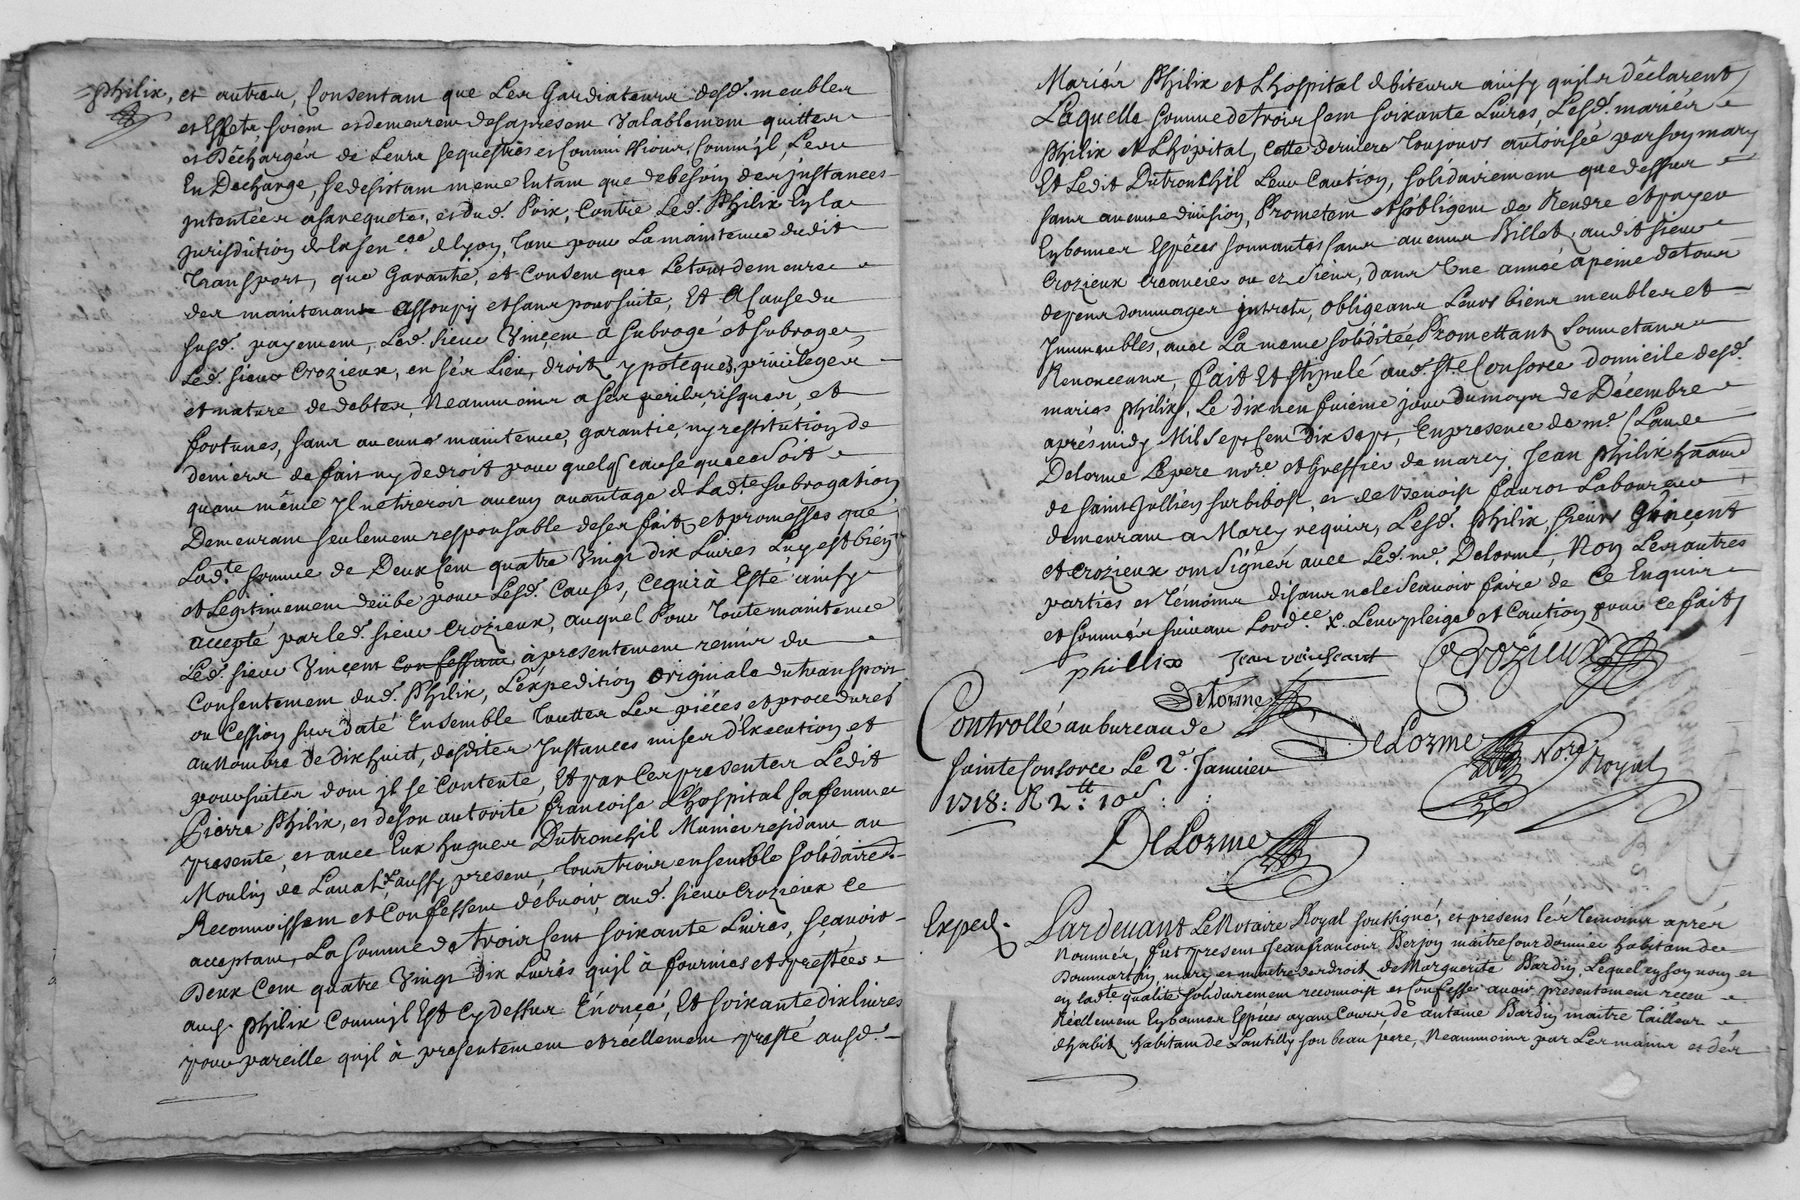 philix, et autres, Consentant que Les Gardiateurs desd. meubles
et Effets, soient et demeurent desapresent valablement quittes
et Déchargés de Leurs sequestres et Commissions, Comm'jl, Leur
En Decharge, se desistant meme Entant que de besoin des jnstances
jntentées asa requete, et dud. Prix, Contre Led. Philix En la
jurisdition de la sen.ee de lyon, tant pour La maintenue dudit
Transport, que Garantie, et Consent que Le tout demeure
des maintenant assoupy et sans poursuite, Et A Cause du
susd. payement, Led. sieur Vinçent à subrogé et subroge
Led. sieur Crozieux, en ses Lieu, droits ypoteques, privileges
et nature de debtes, Neanmoins a ses perils, risques, et
fortunes, sans aucune maintenue, garantie, ny restitution de
deniers de fait ny de droit pour quelq cause que ce soit
quand même jl ne tireroit aucun avantage de Lad.te subrogation
Demeurant seulement responsable de ses faits et promesses que
Lad.te somme de Deux Cent quatre Vingt dix Livres Luy est bien
et Legitimement deübe pour Lesd. Causes, ce qui à Esté ainsy
accepté par led. sieur Crozieux, auquel Pour toute maintenue
Led. sieur Vinçent confessant à présentement remis du
Consentement dud. Philix, L'expedition originale du transport
ou Cession sus daté Ensemble touttes Les piéces et procedures
au Nombre de dix huict, desdites Jnstances mises d'Execution, et
poursuites dont jl se Contente, Et par Ces presentes Ledit
Pierre Philix, et de son autorite francoise L'hospital sa femme
presente, et avec Eux hugues Dutronchil Munier residant au
Moulin de Laval aussy present, tous trois ensemble solidaire.t
Reconnoissent et Confessent debvoir aud. sieur Crozieux ce
acceptant, La somme de trois Cent soixante Livres, sçavoir
Deux Cent quatre Vingt Dix Livres qu'jl à fournies et prestées
aud. philix Comm'jl Est Cy dessus Enoncé, Et soixante dix livres
pour pareille qu'jl à presentement et réellement presté ausd.
Mariés Philix et L'hospital debiteurs ainsy qu'ils déclarent
Laquelle somme de trois Cent soixante Livres, Lesd. mariés
Philix et L'hopital, cette derniere toujours autorisée par son mary
Et Ledit Dutronchil Leur Caution, solidairement que dessus
sans aucune division, Prometent et s'obligent de Rendre et payer
En bonnes Espéces sonnantes sans aucuns Billets, audit sieur
Crozieux creancier ou es siens, dans Une année a peine de tous
depens dommages jnterets, obligeans Leurs biens meubles et
Jmmeubles, avec La meme solidité, Promettant Soumetans
Renonceans, fait Et stipulé aud. Ste Consorce domicile desd.
mariés philix, Le dix neufuieme jour du moys de Décembre
aprés midy Mil sept Cent Dix sept, En presence de m.e Claude
Delorme Le pere no.re et Greffier de marcy, Jean philix
de saint Jullien sur bibost, et de Benoist fauros Laboureur
demeurant a Marcy requis, Lesd. philix, sieurs Vinçent
et Crozieux ont signés avec Led. me. Delorme, Non Les autres
parties et témoins disans ne le sçavoir faire de Ce Enquis
et sommés suivant L'ord.ce x. Leur pleige et Caution pour ce fait
philix Jean Vinseant Crozieux
Delorme
Controllé au bureau de DeLorme No.re Royal
sainte Consorce Le 2.e Janvier
1718: R 2tt: 10s
DeLorme
Exped.
Pardevant Le Notaire Royal soussigné, et presens les temoins aprés
Nommés, fut present Jean francois Berjon maitre Cordonnier habitant de
Dommartin, mary et maitre des droits de Marguerite Bardin, Lequel en son nom et
en lad.te qualité solidairement reconnoist et Confesse avoir presentement receu
Réellement En bonnes Espéces ayant Cours de antoine Bardin maitre tailleur
d'habits habitant de Lentilly son beau pere, Neanmoins par Les mains et des